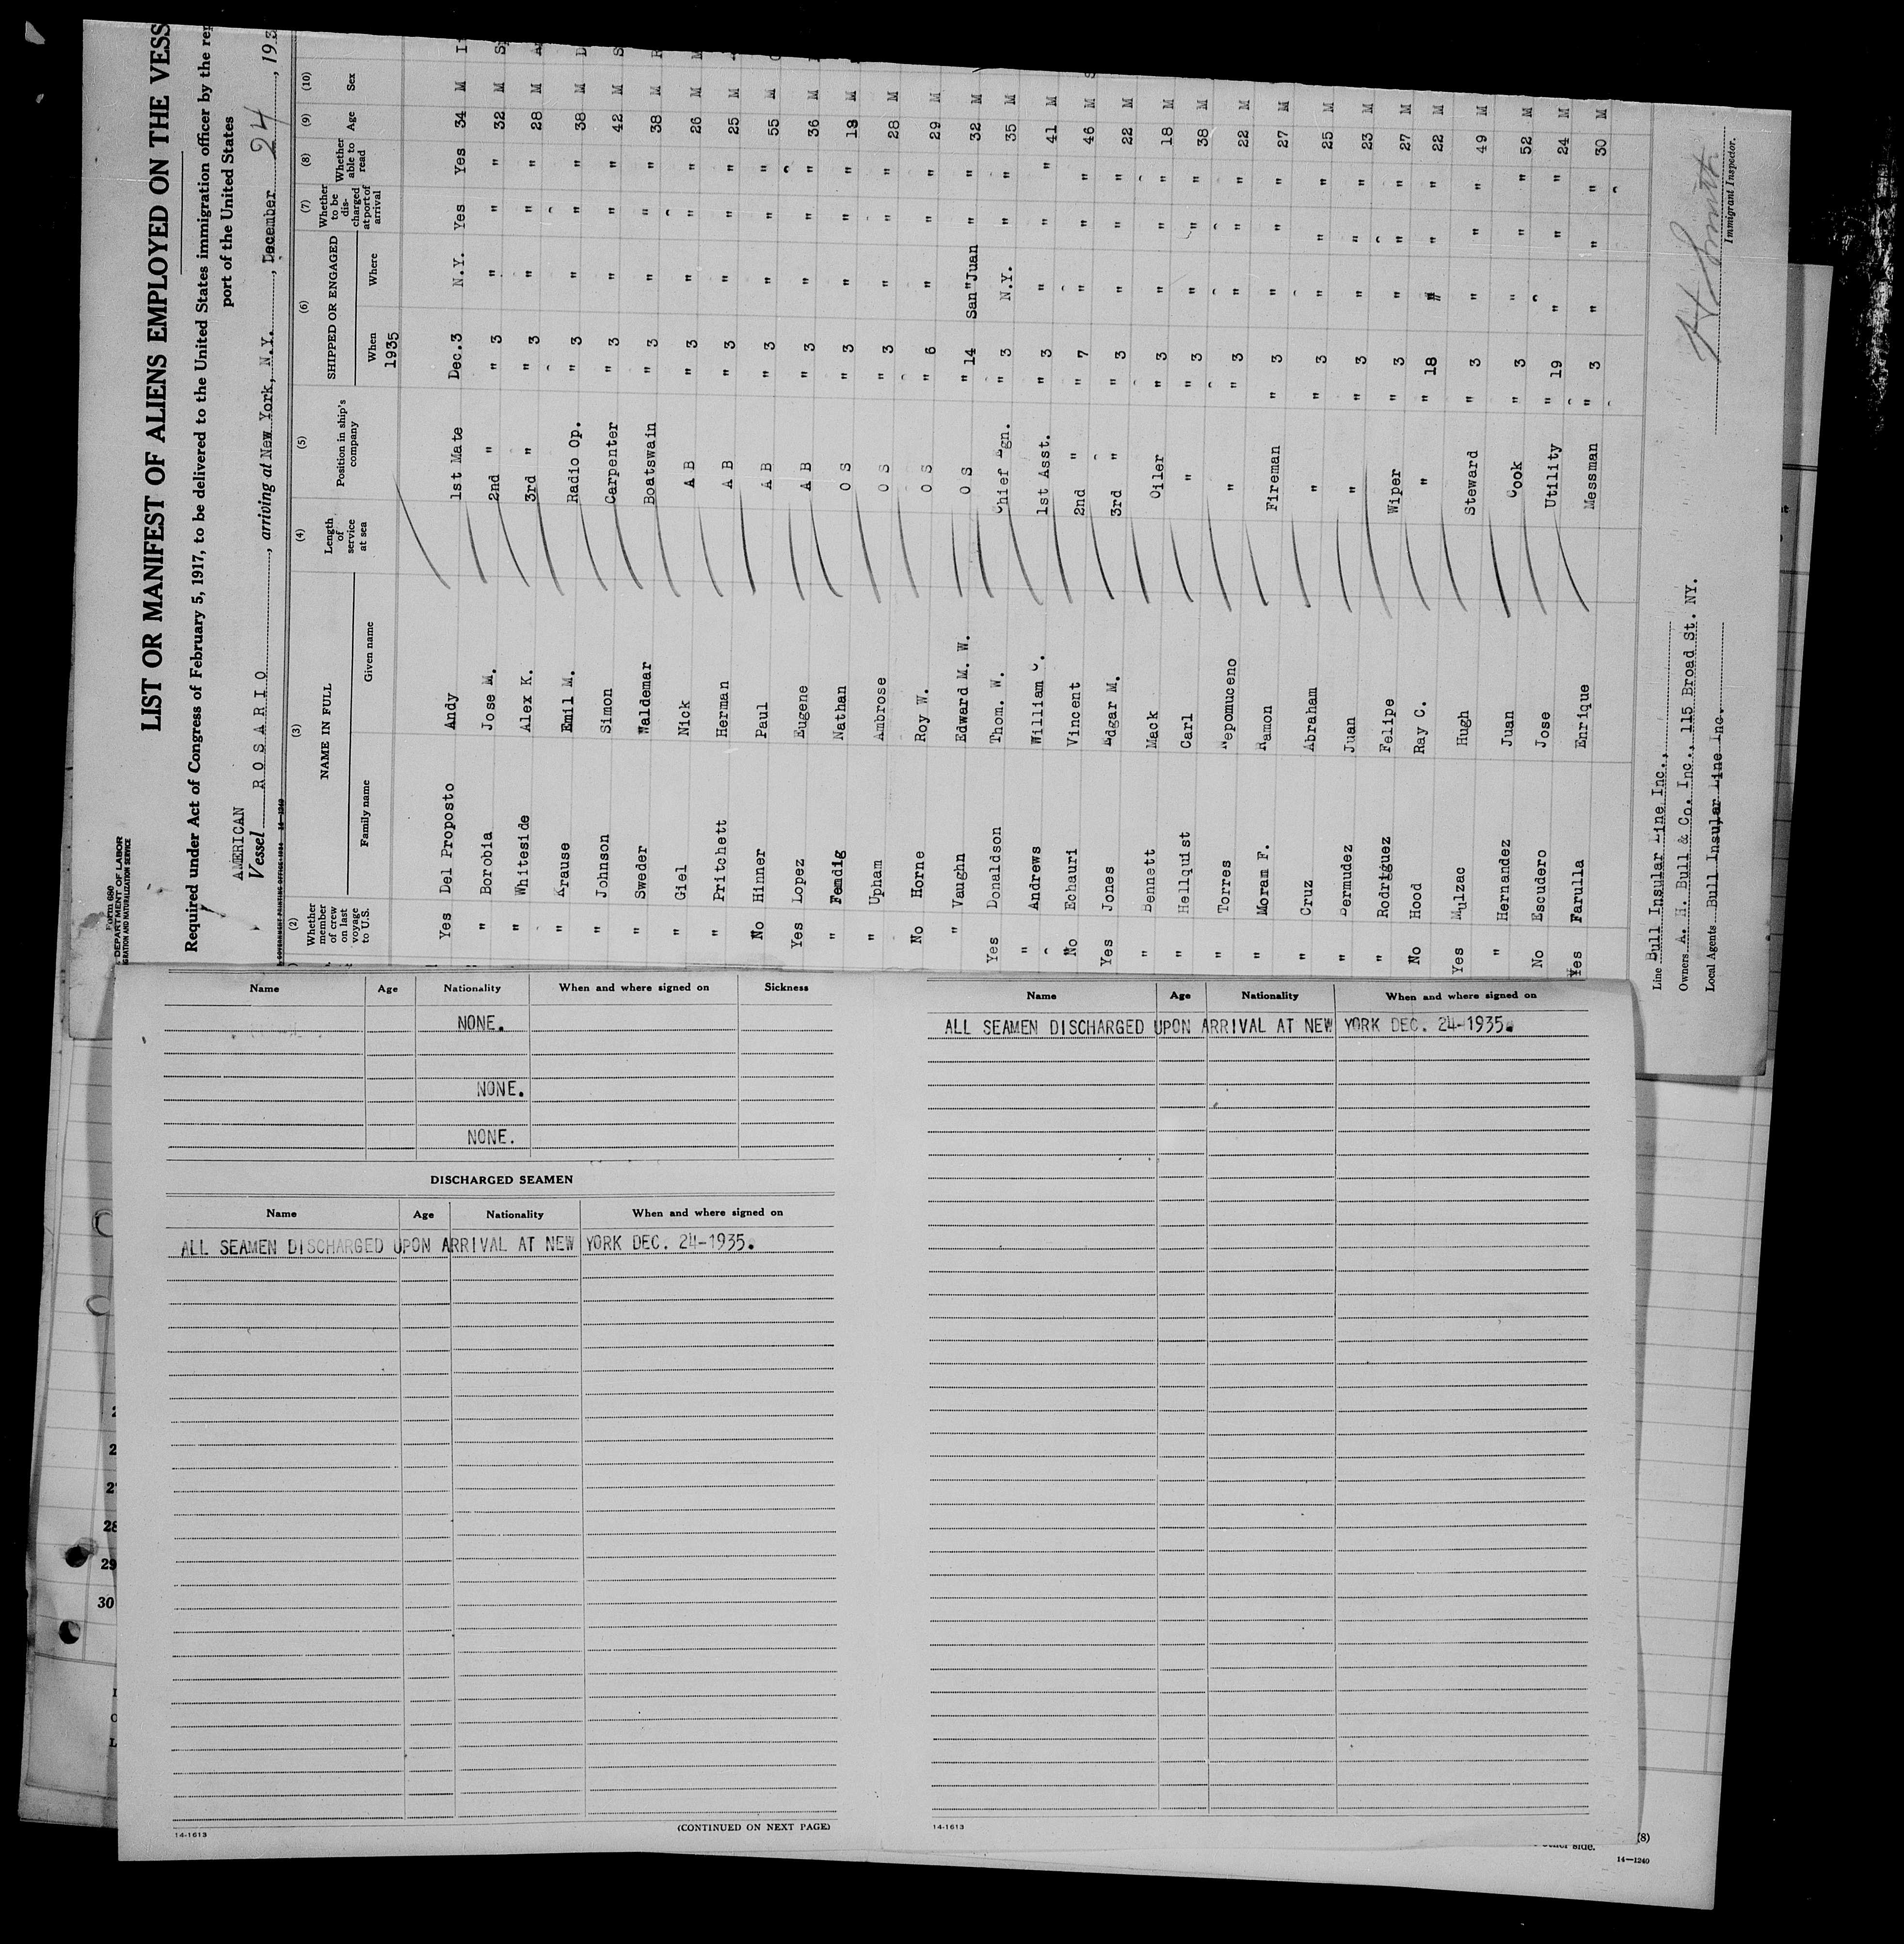 Form 680
DEPARTMENT OF LABOR
LIST OR MANIFEST OF ALIENS EMPLOYED ON THE
Required under Act of Congress of February 5, 1917, to be delivered to the United States immigration officer by the
port of the United States
AMERICAN
Vessel ROSARIO, arriving at New York, N.Y., December 24
(2) (3) (4) (5) (6) (7) (8) (9) (10)
Whether member of crew on last voyage to U.S. NAME IN FULL Family name Given name Length of service at sea Position in ship's company SHIPPED OR ENGAGED When Where Whether to be discharged at port of arrival Whether able to read Age Sex
1935
Yes Del Proposto Andy 1st Mate Dec.3 N.Y. Yes Yes 34 M
" Borobia Jose M. 2nd " " 3 " " " 32 M
" Whiteside Alex K. 3rd " " 3 " " " 28 M
" Krause Emil M. Radio Op. " 3 " " " 38 M
" Johnson Simon Carpenter " 3 " " " 42 M
" Sweder Waldemar Boatswain " 3 " " " 38 M
" Giel Nick A B " 3 " " " 26 M
" Pritchett Herman A B " 3 " " " 25 M
No Hinner Paul A B " 3 " " " 55 M
Yes Lopez Eugene A B " 3 " " " 36 M
" Fendig Nathan O S " 3 " " " M
" Upham Ambrose O S " 3 " " " 28 M
No Horne Roy W. O S " 6 " " " 29 M
" Vaughn Edward M. W. O S " 14 San Juan " " 32 M
Yes Donaldson Thom. W. Chief Egn. " 3 N.Y. " " 35 M
" Andrews William 1st Asst. " 3 " " " 41 M
No Echauri Vincent 2nd " " 7 " " " 46 M
Yes Jones Edgar M. 3rd " " 3 " " " 22 M
" Bennett Mack Oiler " 3 " " " 18 M
" Hellquist Carl " " 3 " " " 38 M
" Torres Nepomuceno " " 3 " " " 22 M
" Moram F. Ramon Fireman " 3 " " " 27 M
" Cruz Abraham " " 3 " " " 25 M
" Bermudez Juan " " 3 " " " 23 M
" Rodriguez Felipe Wiper " 3 " " " 27 M
No Hood Ray C. " " 18 " " " 22 M
Yes Mulzac Hugh Steward " 3 " " " 49 M
" Hernandez Juan Cook " 3 " " " 52 M
No Escudero Jose Utility " 19 " " " 24 M
Yes Farulla Enrique Messman " 3 " " " 30 M
Line Bull Insular Line Inc.,
Owners A. H. Bull & Co. Inc., 115 Broad St. NY.
Local Agents Bull Insular Line Inc.
Immigrant Inspector.
Name Age Nationality When and where signed on Sickness
NONE.
NONE.
NONE.
DISCHARGED SEAMEN
Name Age Nationality When and where signed on
ALL SEAMEN DISCHARGED UPON ARRIVAL AT NEW YORK DEC. 24-1935.
14-1613
(CONTINUED ON NEXT PAGE)
Name Age Nationality When and where signed on
ALL SEAMEN DISCHARGED UPON ARRIVAL AT NEW YORK DEC. 24-1935.
14-1613
28
29
30
side.
(8)
14-1240